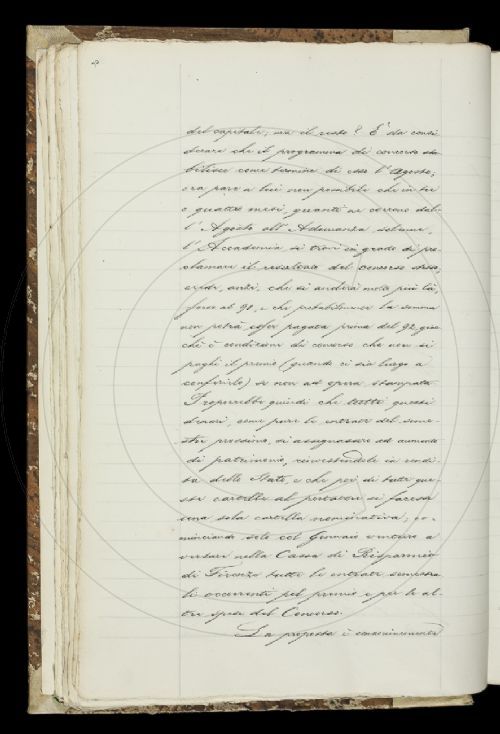 del capitale; ma il resto? È da consi
derare che il programma di concorso sta
bilisce come termine di esso l'Agosto;
ora pare a lui non possibile che in tre
o quattro mesi, quanti ne corrono dal-
l'Agosto all'Adunanza solenne,
l'Accademia si trovi in grado di pro
clamare il resultato del Concorso stesso,
crede, anzi, che si andrà molto più là,
forse al 90, e che probabilmente la somma
non potrà esser pagata prima del 92, giac
chè è condizione di concorso che non si
paghi il premio (quando ci sia luogo a
conferirlo) se non ad opera stampata.
Proporrebbe quindi che tutti questi
denari, come pure le entrate del seme-
stre prossimo, si assegnassero ad aumento
di patrimonio, rinvestendole in rendi-
ta dello Stato, e che poi di tutte que-
ste cartelle al portatore si facesse
una sola cartella nominativa; co-
minciando solo col Gennaio venturo a
versare nella Cassa di Risparmio
di Firenze tutte le entrate semestra
li occorrenti pel premio e per le al-
tre spese del Concorso.
La proposta è